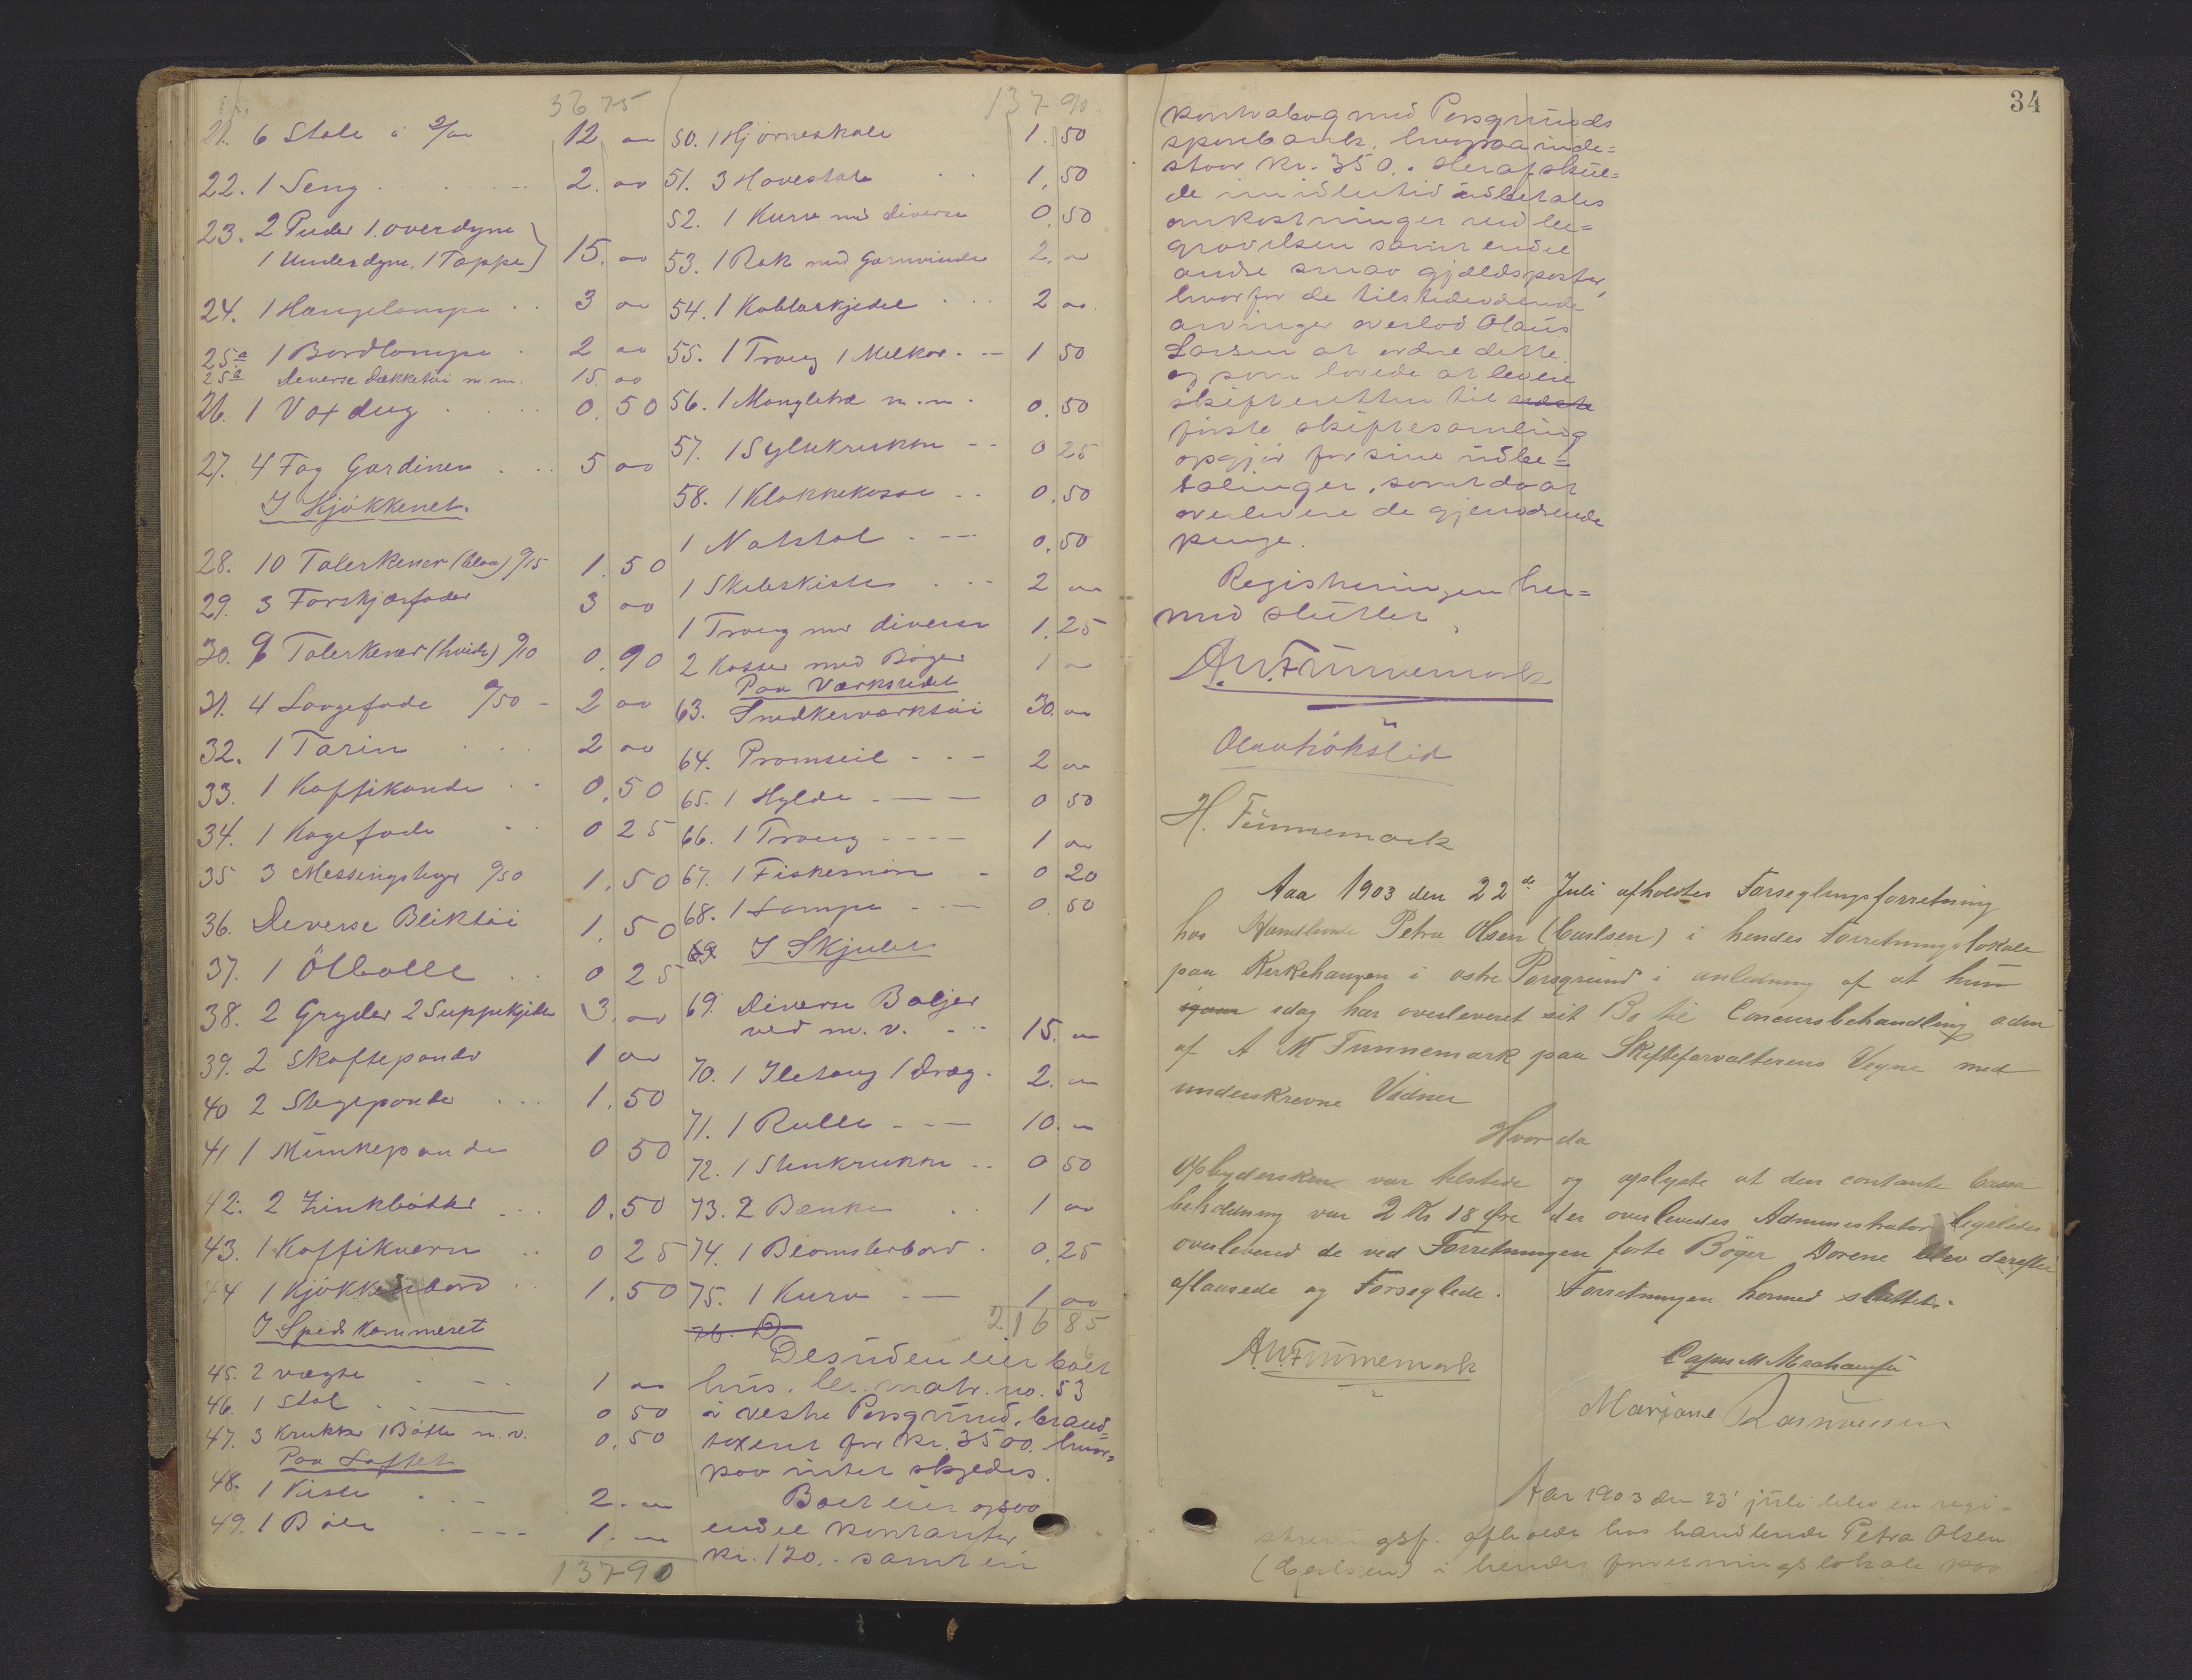 36 75
21. 6 Stole á 2/00 12 00
22. 1 Seng 2. 00
23. 2 Puder 1. overdyne
1 Underdyne, 1 Tæppe 15. 00
24. 1 Hængelampe 3 00
25a 1 Bordlampe 2 00
25b Deverse Dækketøi m.m. 15. 00
26. 1 Voxdug 0. 50
27. 4 Fag Gardiner 5 00
I Kjøkkenet.
28. 10 Talerkener (blaa) 0/15 1. 50
29. 3 Forskjærfader 3 00
30. 9 Talerkener (hvide) 0/10 0. 90
31. 4 Laagefade 0/50 - 2 00
32. 1 Tarin 2 00
33. 1 Kaffikande 0. 50
34. 1 Kagefade 0 25
35 3 Messingstager 0/50 1. 50
36. Deverse Bliktøi 1. 50
37. 1 Ølbolle 0 25
38. 2 Gryder 2 Suppekjedler 3. 00
39. 2 Skaftepander 1 00
40 2 Stegepander 1. 50
41 1 Munkepande 0 50
42. 2 Zinkbøtter 0. 50
43. 1 Kaffikvern 0 25
44 1 Kjøkkenbord 1. 50
I Spidskammeret
45. 2 vægte 1 00
46. 1 Stol 0 50
47. 3 Krukker 1 Bøtte m. v. 0. 50
Paa Loftet
48. 1 Kiste 2. 00
49. 1 Bøle 1. 00
137 90
137 90
50. 1 Hjørneskab 1. 50
51. 3 Havestole 1. 50
52. 1 Kurv med diverse 0 50
53. 1 Rok med Garnvinde 2. 00
54. 1 Kobberkjedel 2 00
55. 1 Traug 1 Melkar 1 50
56. 1 Mangletræ m.m. 0. 50
57. 1 Syltekrukke 0 25
58. 1 Klokkekasse 0. 50
1 Natstol 0. 50
1 Skibskiste 2 00
1 Traug med diverse 1. 25
2 Kasser med Bøger 1 00
Paa Værkstedet
63. Snedkerværktøi 30. 00
64. Pramseil 2 00
65. 1 Hylde 0 50
66. 1 Traug 1 00
67. 1 Fiskesnøre 0 20
68. 1 Lampe 0. 50
69 I Skjulet
69. Diverse Baljer
ved m. v. 15. 00
70. 1 Iletaug 1 Dræg 2. 00
71. 1 Rulle 10. 00
72. 1 Stenkrukke 0 50
73. 2 Bænke 1 00
74. 1 Blomsterbord 0. 25
75. 1 Kurv 1 00
76. D 216 85
Desuden eier boet
hus. br. matr. no. 53
i vestre Porsgrund, brand=
taxeret for kr. 3500. hvor=
paa intet skyldes.
Boet eier ogsaa
endel kontanter
kr. 120. - samt en
34
kontrabog med Porsgrunds
sparebank, hvorpaa inde=
staar kr. 350. Heraf skul=
de imidlertid udbetales
omkostninger ved be=
gravelsen samt endel
andre smaa gjældsposter,
hvorfor de tilstedeværende
arvinger overlod Olaus
Larsen at ordne dette,
og som lovede at levere
skifteretten til næste
første skiftesamling
opgjør for sine udbe=
talinger, samt da at
overlevere de gjenværende
penge.
Registreringen her=
med sluttet,
A. W. Funnemark
Olav Høkslid
H. Funnemark
Aaa 1903 den 22de Juli afholdtes Forseglingsforretning
hos Handlende Petra Olsen (Carlsen) i hendes Forretningslokale
paa Kirkehaugen i østre Porsgrund i anledning af at hun
igaar idag har overleveret sit Bo til Concursbehandling adm
af A W Funnemark paa Skifteforvalterens Vegne med
underskrevne Vidner
Hvor da
Opbydersken var tilstede og oplyste at den contante Cassa
beholdning var 2 Kr 18 Øre der overlevedes Administrator ligeledes
overleverede de ved Forretningen førte Bøger Dørene blev derefter
aflaasede og Forseglede. Forretningen hermed sluttet.
A. W. Funnemark
Marjane Rasmussen
Aar 1903 den 23' juli blev en regi=
streringsf. afholdt hos handlende Petra Olsen
(Carlsen) i hendes forretningslokale paa